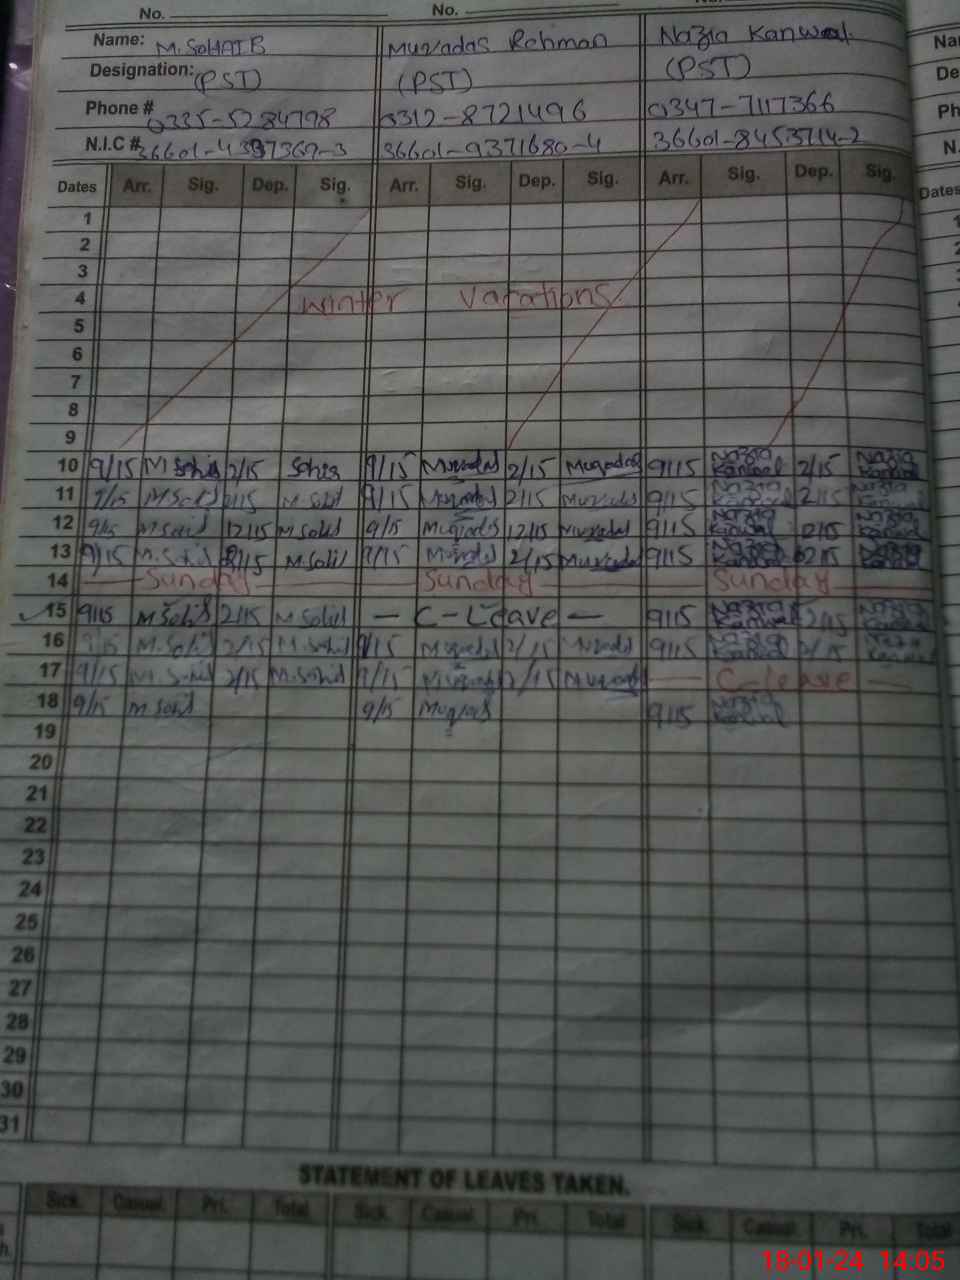 No. No. No.
Name: M.SOHAIB Muqadas Rehman Nazia Kanwal Na
Designation: (PST) (PST) (PST) De
Phone # 0335-5284798 0312-8721496 0347-7117366 Ph
N.I.C # 36601-9371680-4 36601-8453714-2 N.
Dates Arr. Sig. Dep. Sig. Arr. Sig. Dep. Sig. Arr. Sig. Dep. Sig. Dates
1
2
3
4 Winter Vacations
5
6
7
8
9
10 9/15 M Sohib 2/15 Sohib 9/15 Muqadas 2/15 Muqadas 9/15 Nazia Kanwal 2/15 Nazia Kanwal
11 9/15 M.Sohib 2/15 M.Sohib 9/15 Muqadas 2/15 Muqadas 9/15 Nazia Kanwal 2/15 Nazia Kanwal
12 9/15 M.Sohib 12/15 M.Sohib 9/15 Muqadas 12/15 Muqadas 9/15 Nazia Kanwal 12/15 Nazia Kanwal
13 9/15 M.Sohib 2/15 M.Sohib 9/15 Muqadas 2/15 Muqadas 9/15 Nazia Kanwal 2/15 Nazia Kanwal
14 Sunday Sunday Sunday
15 9/15 M Sohib 2/15 M Sohib - C-Leave - 9/15 Nazia Kanwal 2/15 Nazia Kanwal
16 9/15 M.Sohib 2/15 M.Sohib 9/15 Muqadas 2/15 Muqadas 9/15 Nazia Kanwal 2/15 Nazia Kanwal
17 9/15 M Sohib 2/15 M.Sohib 9/15 Muqadas 2/15 Muqadas - C-leave -
18 9/15 M Sohib 9/15 Muqadas 9/15 Nazia Kanwal
19
20
21
22
23
24
25
26
27
28
29
30
31
STATEMENT OF LEAVES TAKEN.
Sick. Casual. Pri. Total Sick. Casual. Pri. Total Sick. Casual. Pri. Total
h.
18-01-24 14:05